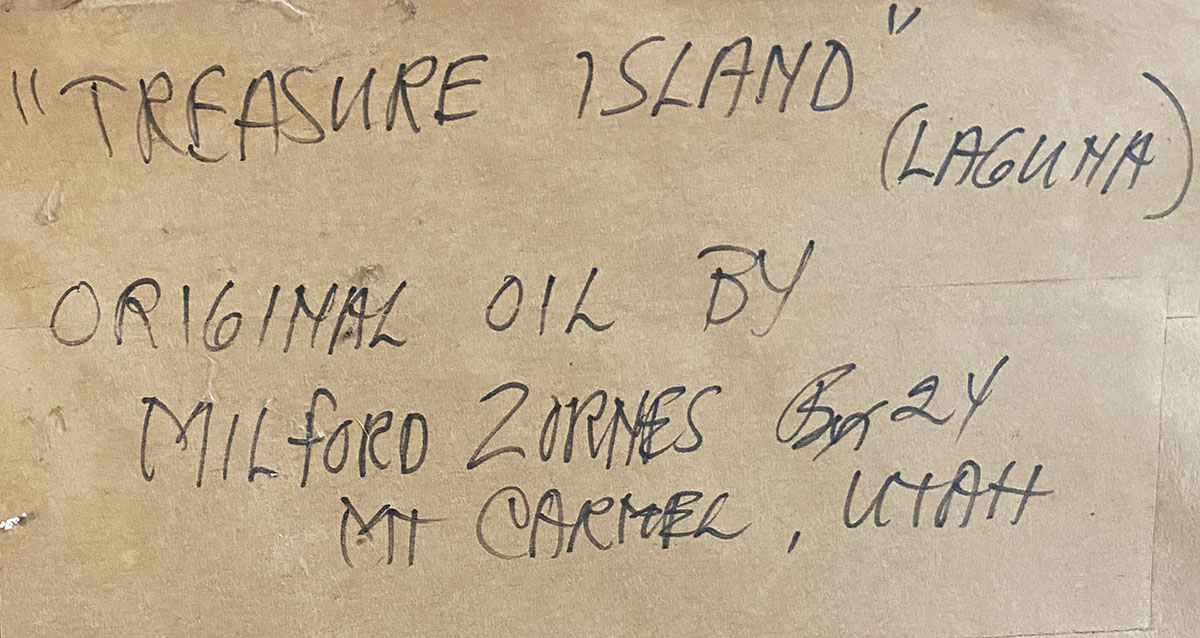 "TREASURE ISLAND"
(LAGUNA)
ORIGINAL OIL BY
MILFORD ZORNES Box 24
MT CARMEL, UTAH